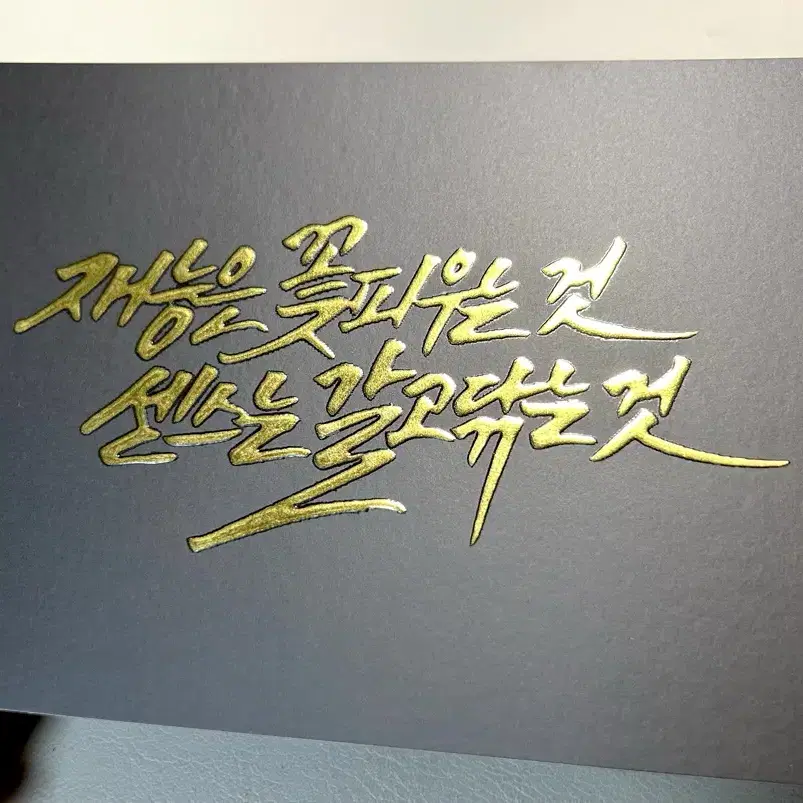 재능은 꽃피우는 것
센스는 갈고닦는 것